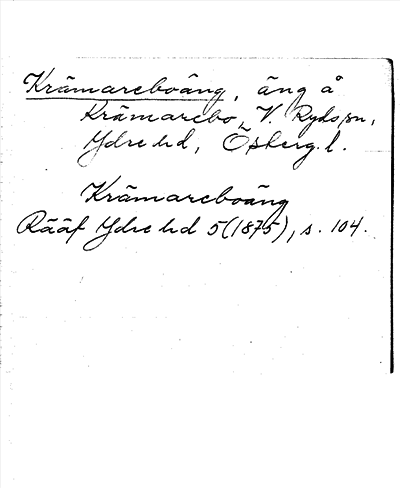 Krämareboäng, äng å
Krämarebo, V. Ryds sn,
Ydre hd, Österg. l.
Krämareboäng
Rääf Ydre hd 5(1875), s. 104.